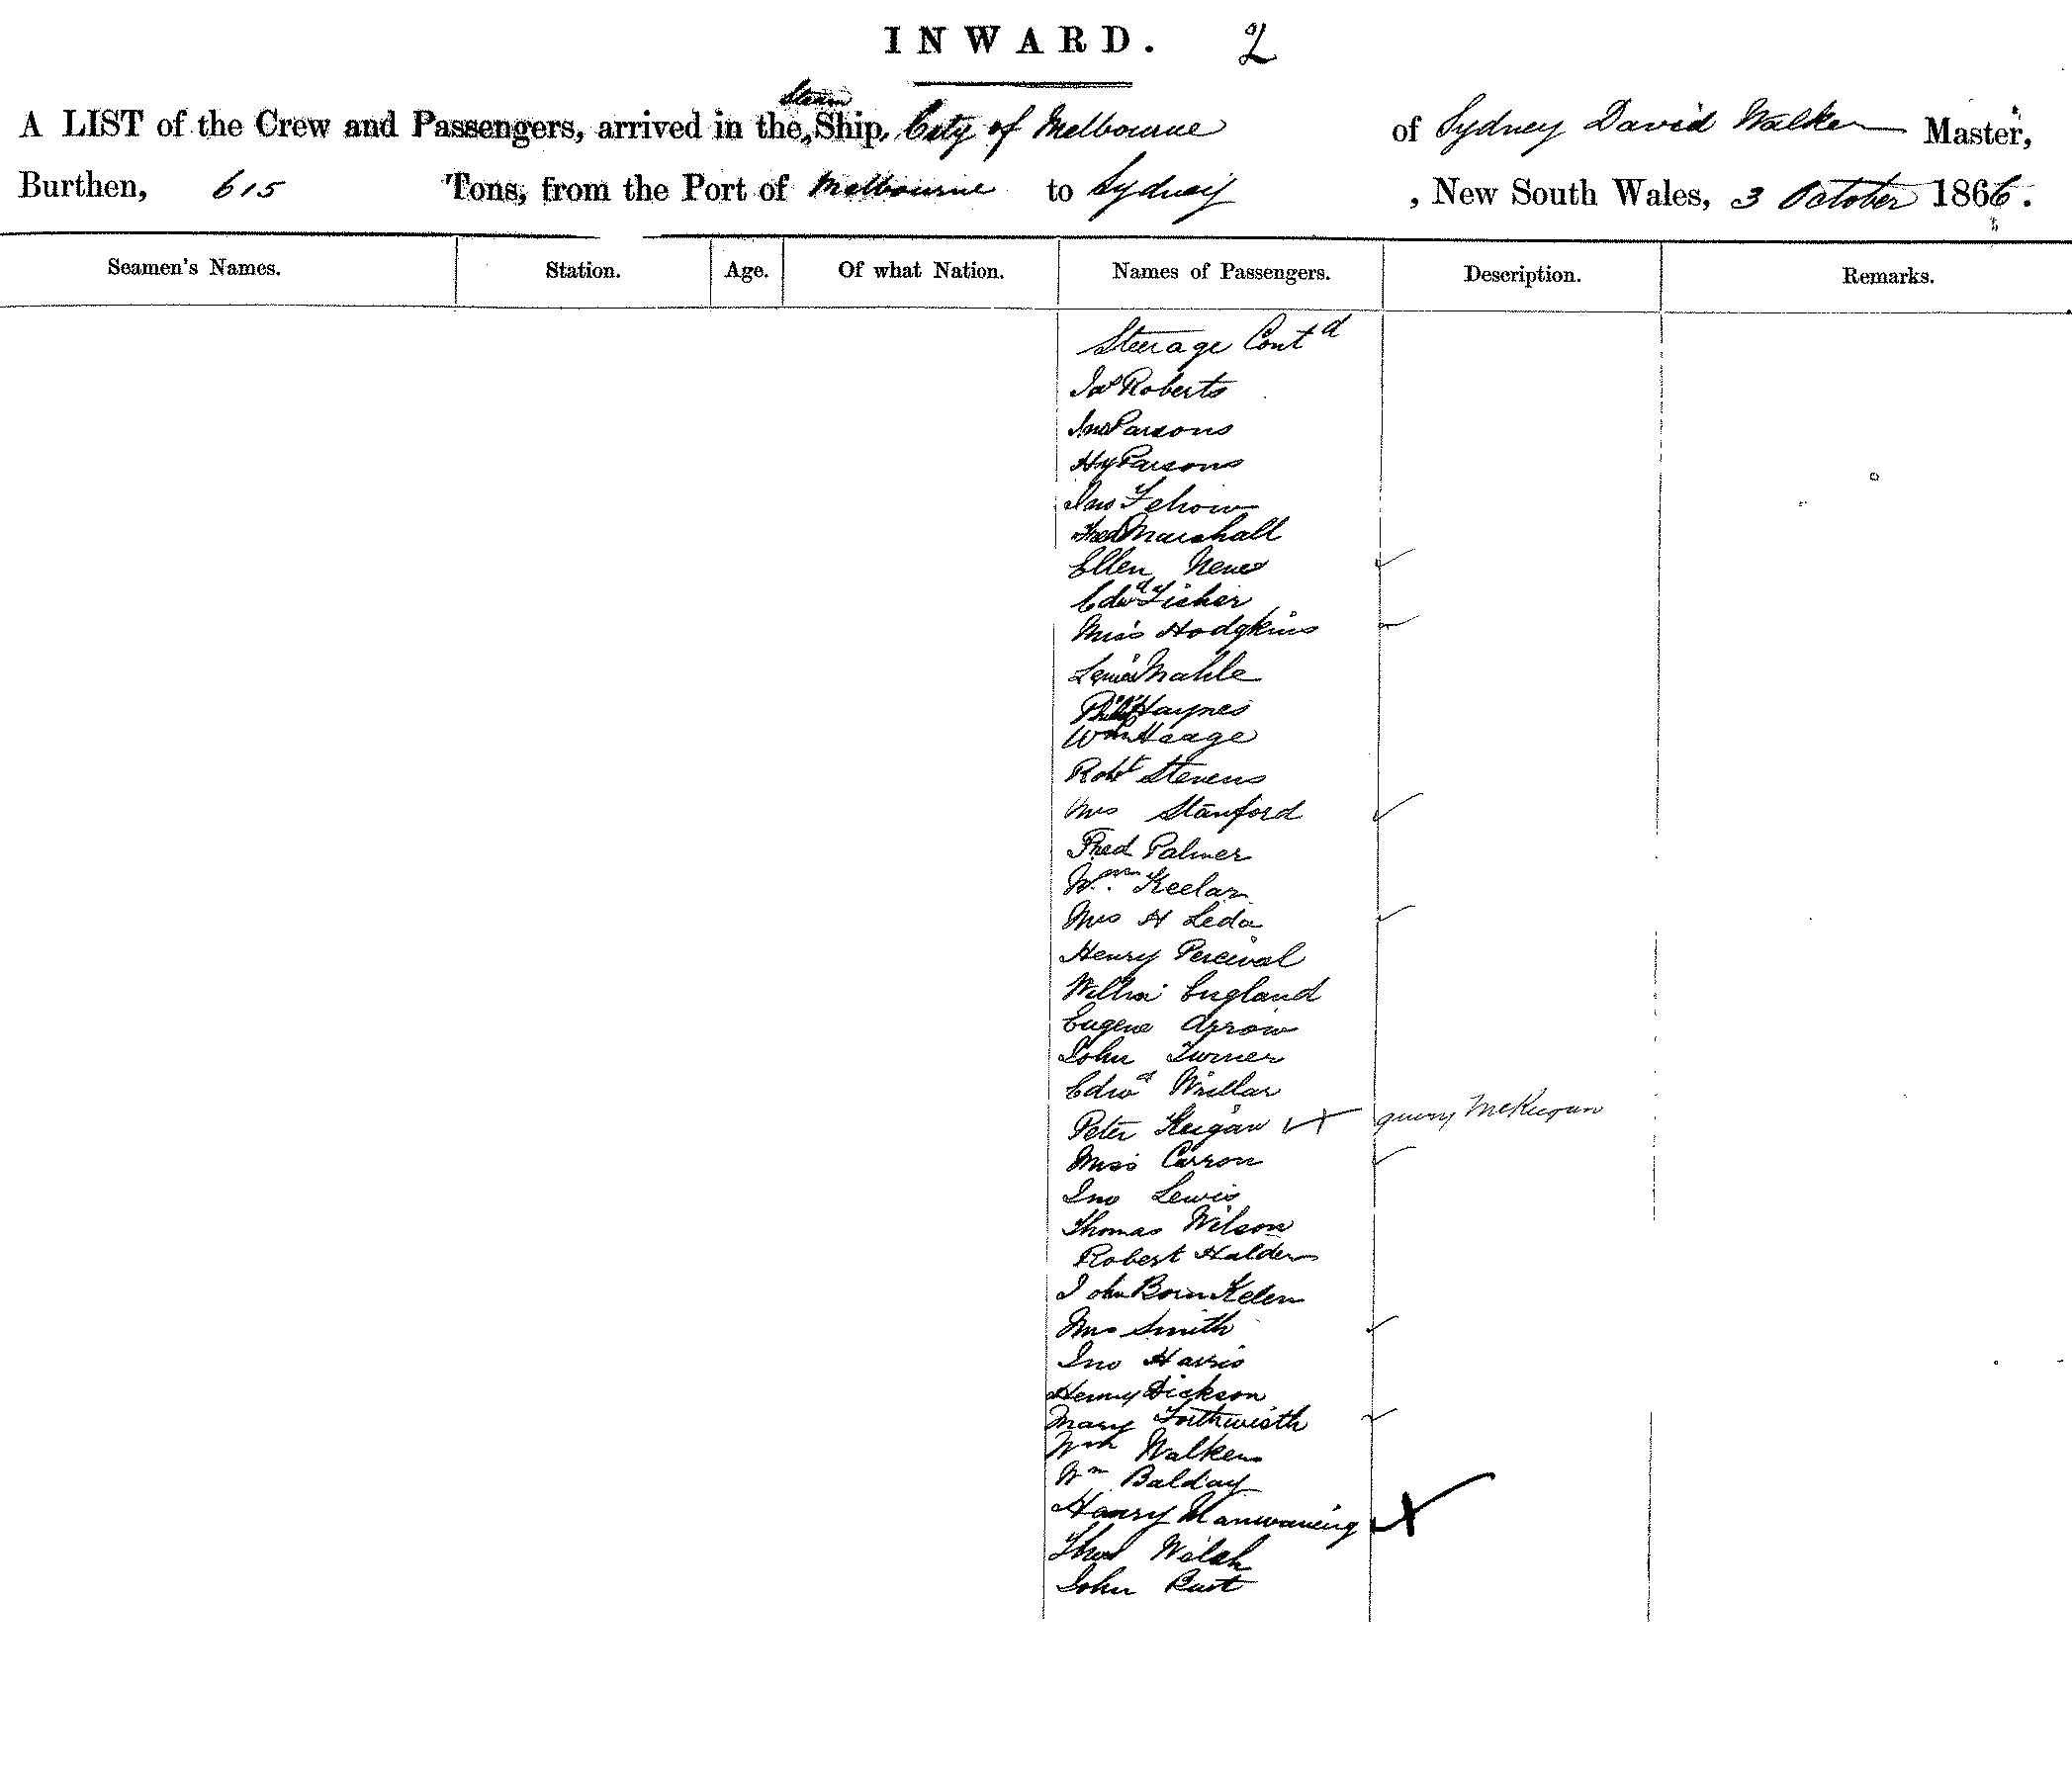 INWARD. 2
A LIST of the Crew and Passengers, arrived in the Steam Ship, City of Melbourne of Sydney David Walker Master,
Burthen, 615 Tons, from the Port of Melbourne to Sydney, New South Wales, 3 October 1866.
Seamen's Names. Station. Age. Of what Nation. Names of Passengers. Description. Remarks.
Steerage Contd
Jas Roberts
Jno Parsons
Hy Parsons
Jno
Fred Marshall
Ellen
Edwd Fisher
Miss Hodgkins
Mahle
Philip Haynes
Wm Haage
Robt Stevens
Mrs Stanford
Fred Palmer
Wm Keelar
Mrs H Leda
Henry Percival
England
Eugene Arrow
John Turner
Edwd Willar
Peter Keigan query McKeegan
Miss Carron
Jno Lewis
Thomas Wilson
Robert Halder
John
Mrs Smith
Jno Harris
Henry Dickson
Mary
Wm Walker
Wm Balday
Henry Manwaring
Thos Welsh
John Rust